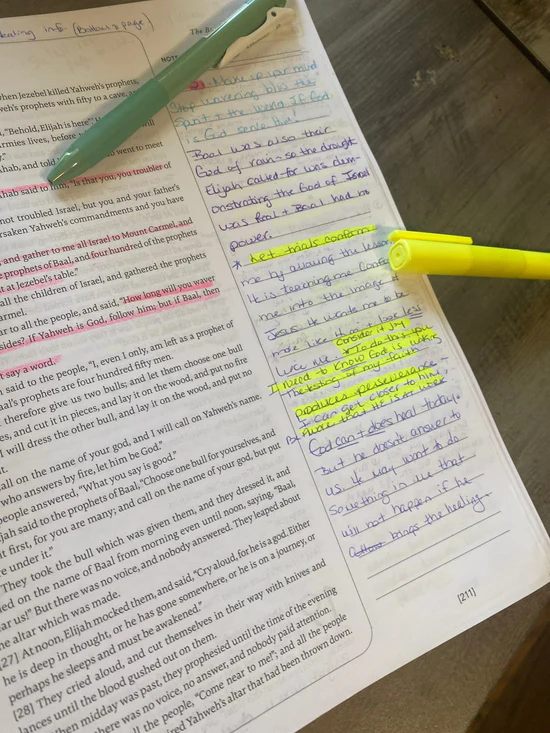 ealing info. (Baileus & page)
The B
NOTE
when Jezebel killed Yahweh's prophets,
weh's prophets with fifty to a cave, a
d, "Behold, Elijah is here" H will
Armies lives, before
y."
hab, and told went to meet
Ahab said to him, "Is that you, you troubler of
not troubled Israel, but you and your father's
rsaken Yahweh's commandments and you have
and gather to me all Israel to Mount Carmel, and
e prophets of Baal, and four hundred of the prophets
at at Jezebel's table."
all the children of Israel, and gathered the prophets
armel.
ar to all the people, and said, "How long will you waver
sides? If Yahweh is God, follow him; but if Baal, then
t say a word.
h said to the people, "I, even I only, am left as a prophet of
aal's prophets are four hundred fifty men.
t therefore give us two bulls; and let them choose one bull
es, and cut it in pieces, and lay it on the wood, and put no fire
I will dress the other bull, and lay it on the wood, and put no
it.
all on the name of your god, and I will call on Yahweh's name.
who answers by fire, let him be God."
people answered, "What you say is good."
jah said to the prophets of Baal, "Choose one bull for yourselves, and
it first, for you are many; and call on the name of your god, but put
e under it."
They took the bull which was given them, and they dressed it, and
ed on the name of Baal from morning even until noon, saying, "Baal,
ar us!" But there was no voice, and nobody answered. They leaped about
he altar which was made.
[27] At noon, Elijah mocked them, and said, "Cry aloud, for he is a god. Either
he is deep in thought, or he has gone somewhere, or he is on a journey, or
perhaps he sleeps and must be awakened."
[28] They cried aloud, and cut themselves in their way with knives and
lances until the blood gushed out on them.
hen midday was past, they prophesied until the time of the evening
there was no voice, no answer, and nobody paid attention.
ll the people, "Come near to me!"; and all the people
ired Yahweh's altar that had been thrown down.
Make up your mind
Stop wavering b/w the
Spirit + the world. If God
is God serve Him!
Baal was also their
God of rain - so the drought
Elijah called for was dem-
onstrating the God of Israel
was Real + Baal had no
power.
* Let trials conform
me by allowing the lesson
It is teaching me Confo
me into the image of
Jesus. He wants me to be
more like Him + look less
like me. Consider it Joy
* To do that you
I need to know God is working
The testing of my faith
produces perseverance -
I can get closer to him,
know that HE is at work
God can + does heal today.
But he doesn't answer to
us. He may want to do
something in me that
will not happen if he
brings the healing.
[211]